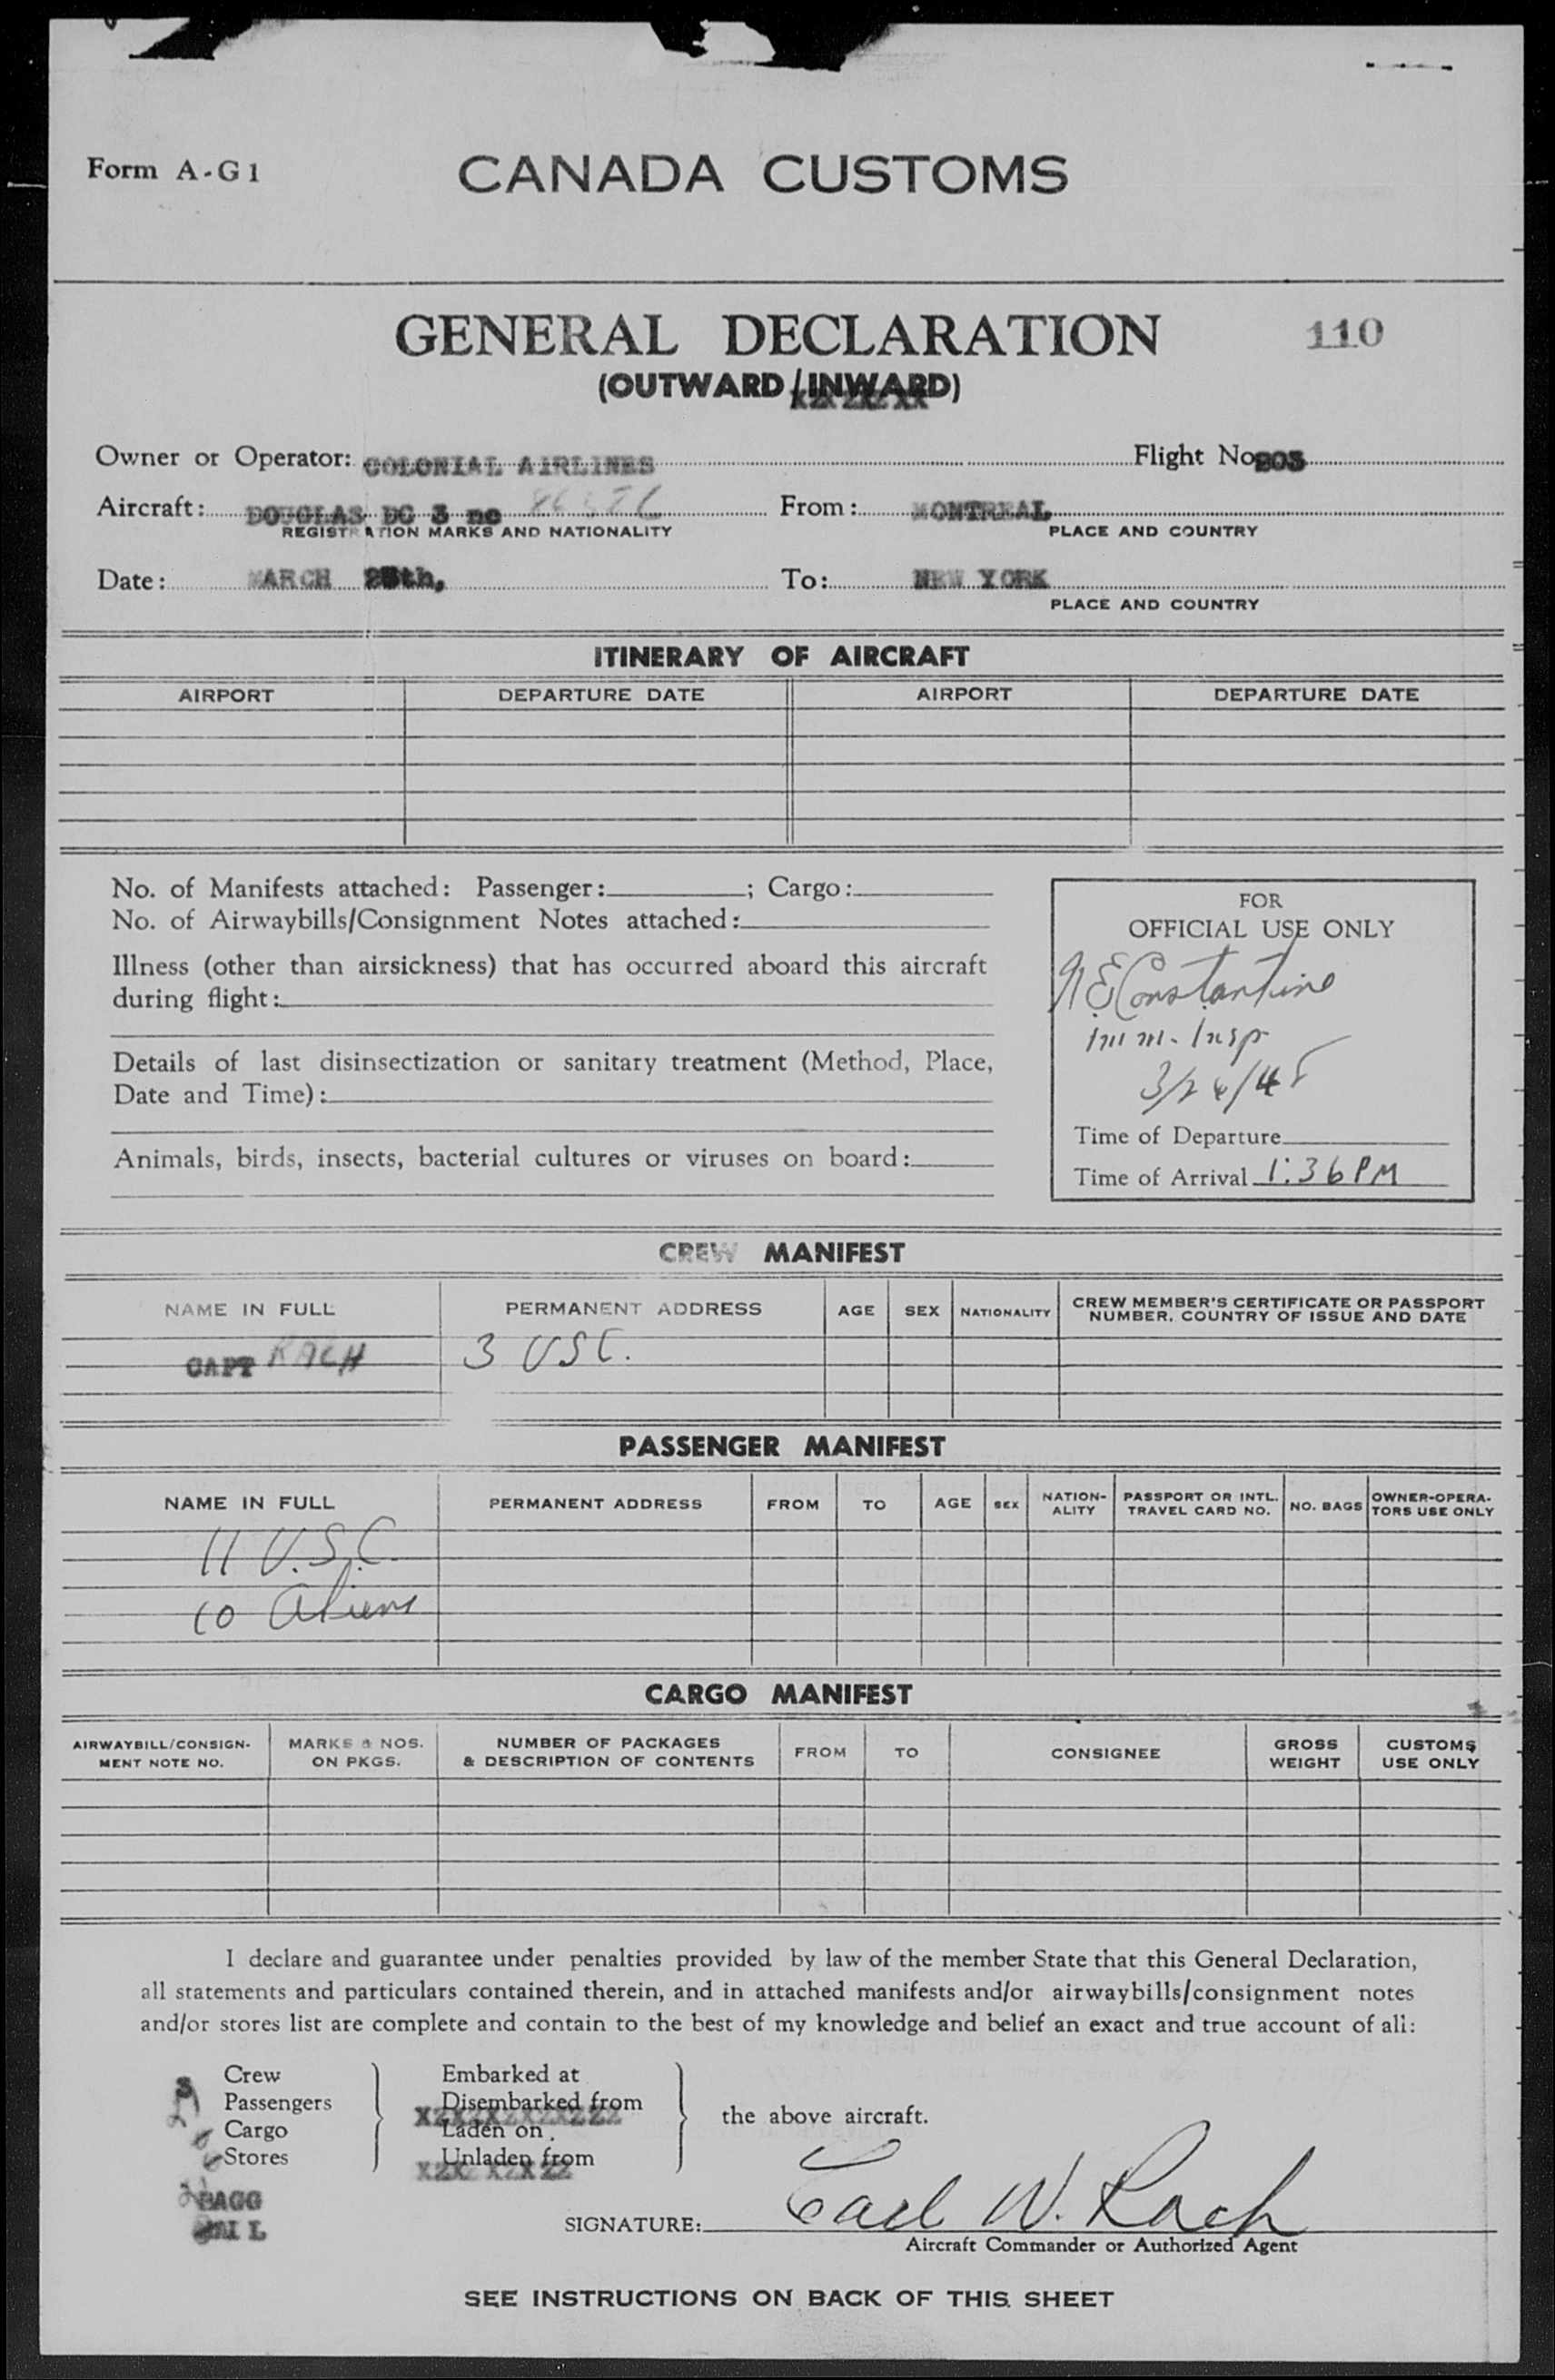 Form A-G1
CANADA CUSTOMS
GENERAL DECLARATION 110
(OUTWARD/INWARD)
Owner or Operator: COLONIAL AIRLINES Flight No
Aircraft: DOUGLAS DC 3 nc From: MONTREAL
REGISTRATION MARKS AND NATIONALITY PLACE AND COUNTRY
Date: MARCH To: NEW YORK
PLACE AND COUNTRY
ITINERARY OF AIRCRAFT
AIRPORT DEPARTURE DATE AIRPORT DEPARTURE DATE
No. of Manifests attached: Passenger: ; Cargo:
No. of Airwaybills/Consignment Notes attached:
Illness (other than airsickness) that has occurred aboard this aircraft
during flight:
Details of last disinsectization or sanitary treatment (Method, Place,
Date and Time):
Animals, birds, insects, bacterial cultures or viruses on board:
FOR
OFFICIAL USE ONLY
Constantine
Imm. Insp
Time of Departure
Time of Arrival 1:36 PM
CREW MANIFEST
NAME IN FULL PERMANENT ADDRESS AGE SEX NATIONALITY CREW MEMBER'S CERTIFICATE OR PASSPORT
NUMBER, COUNTRY OF ISSUE AND DATE
CAPT RACH 3 USC.
PASSENGER MANIFEST
NAME IN FULL PERMANENT ADDRESS FROM TO AGE SEX NATION-
ALITY PASSPORT OR INTL.
TRAVEL CARD NO. NO. BAGS OWNER-OPERA-
TORS USE ONLY
11 U.S.C.
10 Aliens
CARGO MANIFEST
AIRWAYBILL/CONSIGN-
MENT NOTE NO. MARKS & NOS.
ON PKGS. NUMBER OF PACKAGES
& DESCRIPTION OF CONTENTS FROM TO CONSIGNEE GROSS
WEIGHT CUSTOMS
USE ONLY
I declare and guarantee under penalties provided by law of the member State that this General Declaration,
all statements and particulars contained therein, and in attached manifests and/or airwaybills/consignment notes
and/or stores list are complete and contain to the best of my knowledge and belief an exact and true account of all:
3 Crew Embarked at
Passengers Disembarked from
Cargo Laden on
Stores Unladen from
the above aircraft.
BAGG
SIGNATURE: Earl W. Rach
Aircraft Commander or Authorized Agent
SEE INSTRUCTIONS ON BACK OF THIS SHEET